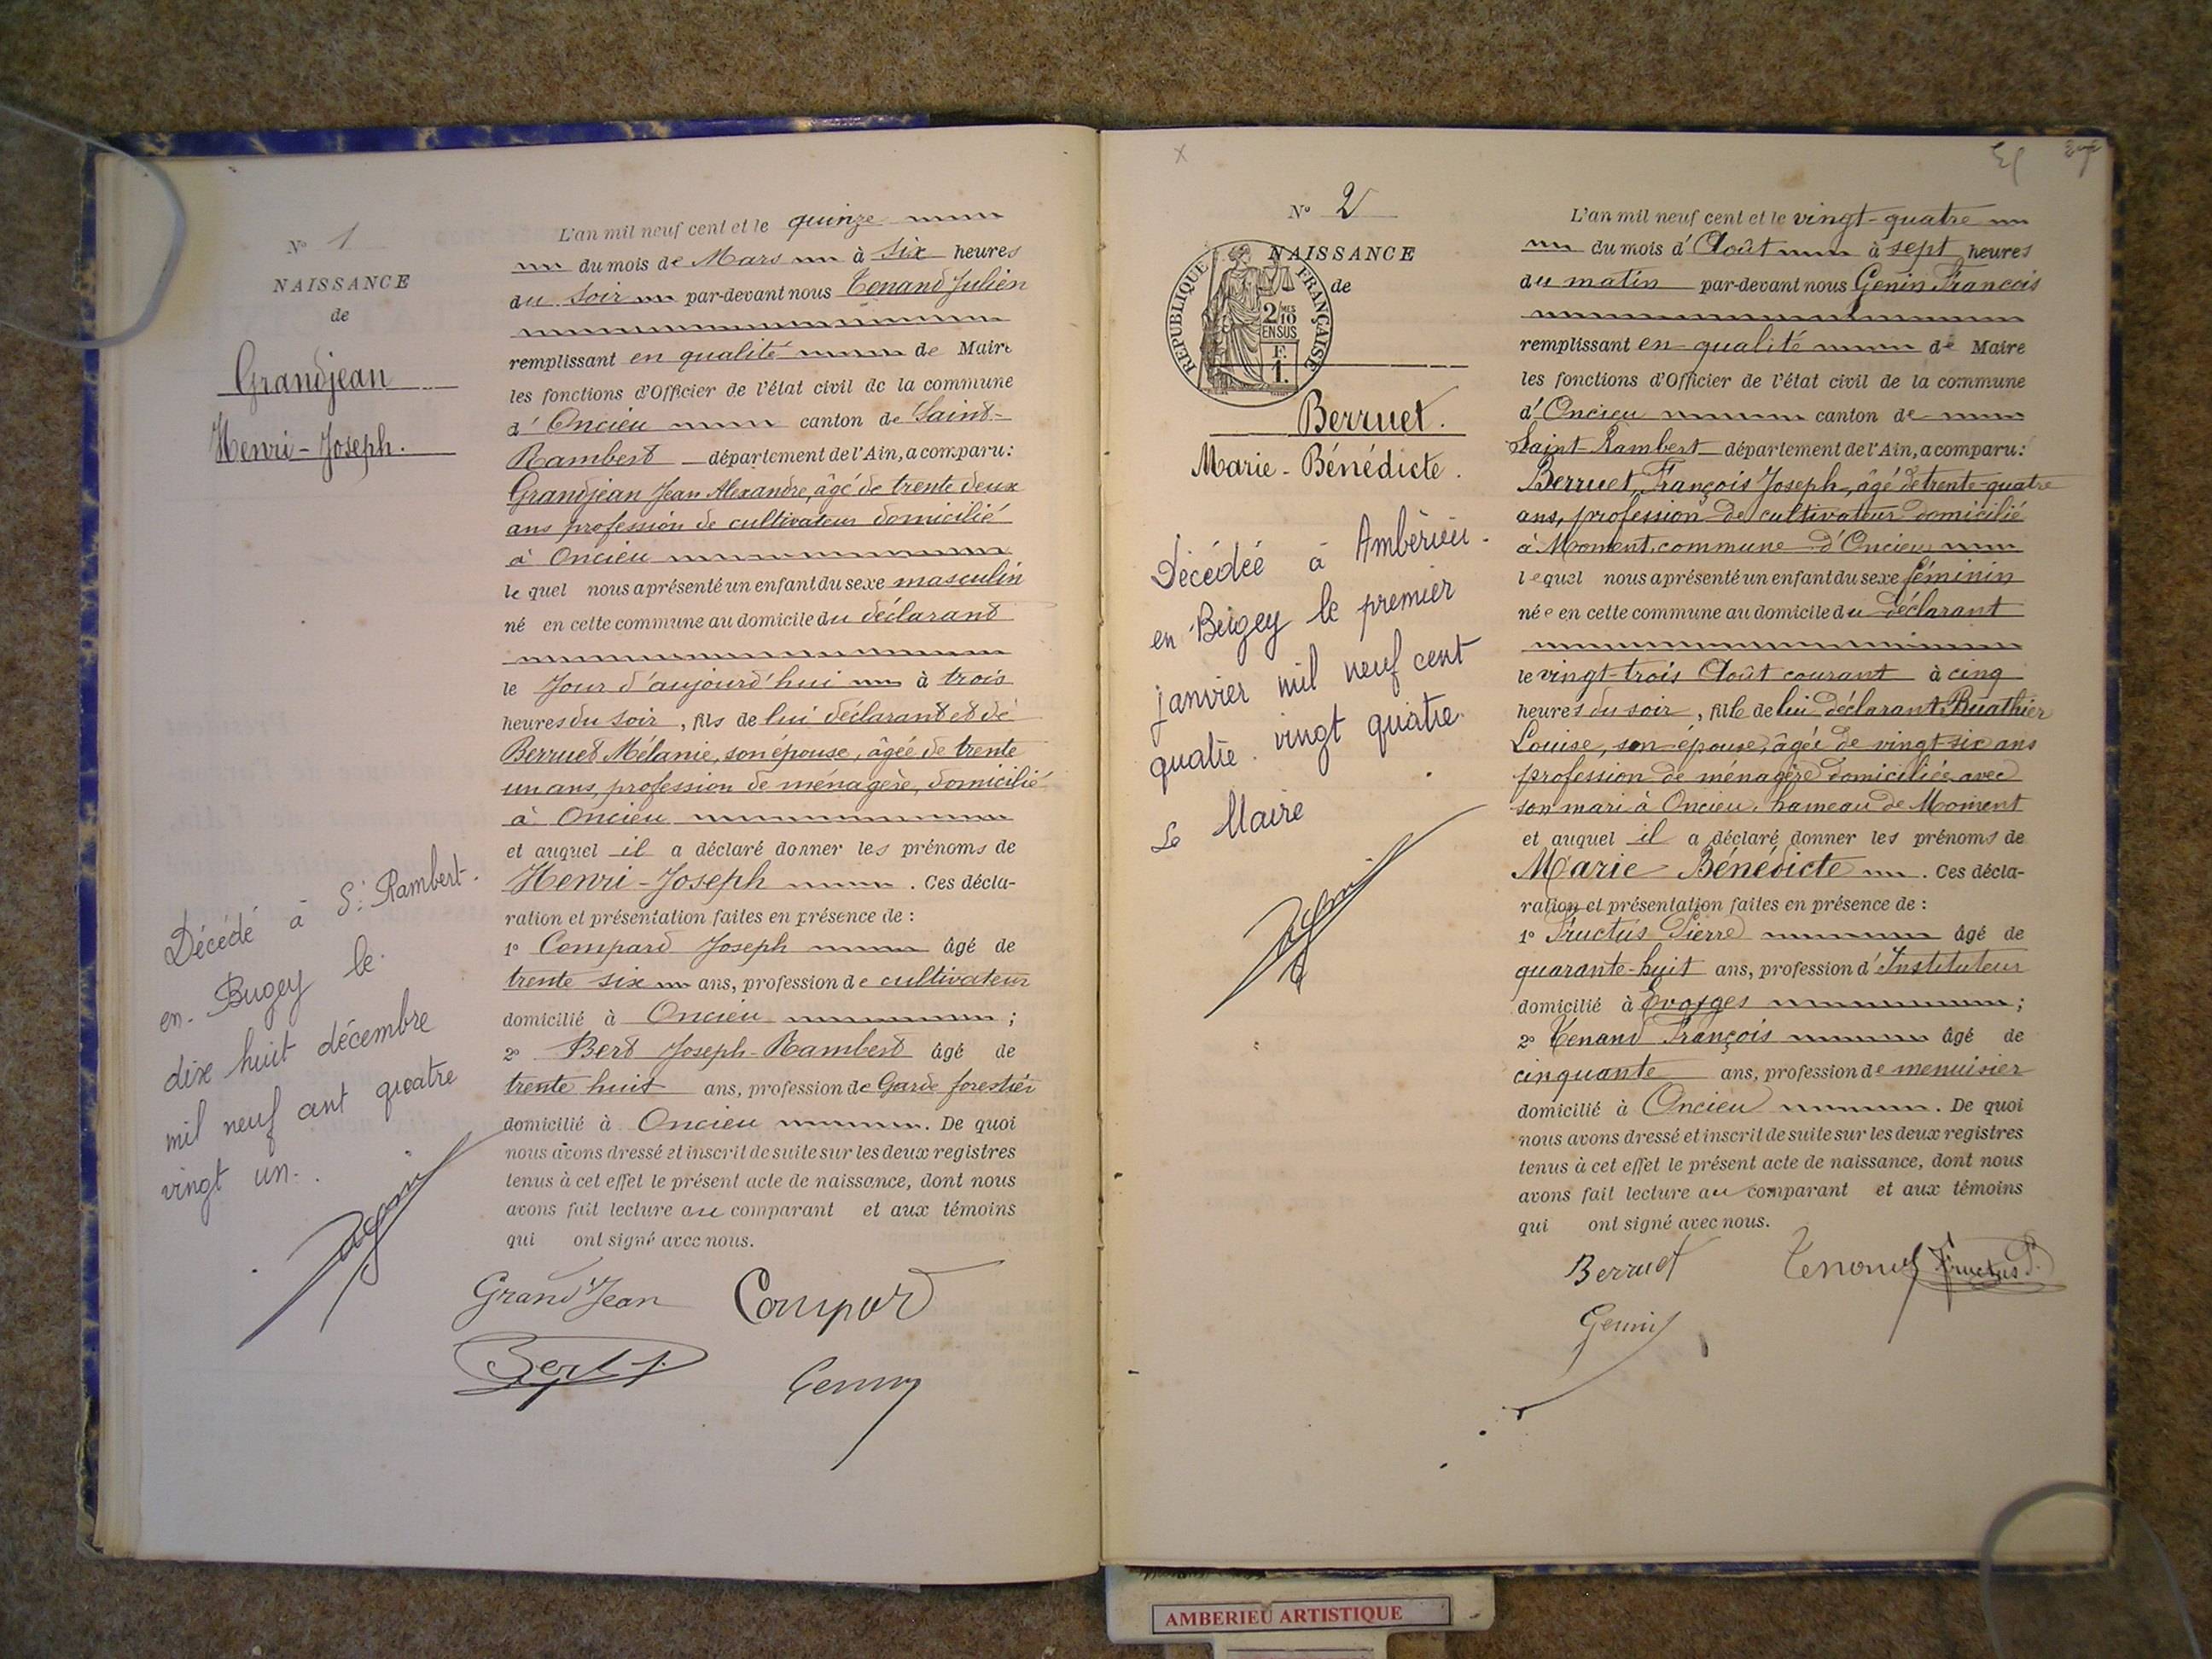 N° 1
NAISSANCE
de
Grandjean
Henri-Joseph.
Décédé à St Rambert.
en. Bugey le.
dix huit décembre
mil neuf cent quatre
vingt un.
L'an mil neuf cent et le quinze
du mois de Mars à six heures
du soir par-devant nous Tenand Julien
remplissant en qualité de Maire
les fonctions d'Officier de l'état civil de la commune
d'Oncieu canton de Saint-
Rambert département de l'Ain, a comparu:
Grandjean Jean Alexandre, âgé de trente deux
ans profession de cultivateur domicilié
à Oncieu
lequel nous a présenté un enfant du sexe masculin
né en cette commune au domicile du déclarant
le Jour d'aujourd'hui à trois
heures du soir, fils de lui déclarant et de
Berruet Mélanie, son épouse, âgée de trente
un ans, profession de ménagère, domicilié
à Oncieu
et auquel il a déclaré donner les prénoms de
Henri-Joseph. Ces décla-
ration et présentation faites en présence de :
1° Compard Joseph âgé de
trente six ans, profession de cultivateur
domicilié à Oncieu ;
2° Bert Joseph-Rambert âgé de
trente huit ans, profession de Garde forestier
domicilié à Oncieu. De quoi
nous avons dressé et inscrit de suite sur les deux registres
tenus à cet effet le présent acte de naissance, dont nous
avons fait lecture au comparant et aux témoins
qui ont signé avec nous.
GrandJean Compard
Bert J.
Genin
N° 2
NAISSANCE
de
RÉPUBLIQUE FRANÇAISE
2/10 MES
EN SUS
F.
1.
Berruet.
Marie-Bénédicte.
Décédée à Ambérieu.
en Bugey le premier
janvier mil neuf cent
quatre. vingt quatre.
Le Maire
L'an mil neuf cent et le vingt-quatre
du mois d'Août à sept heures
du matin par-devant nous Genin François
remplissant en qualité de Maire
les fonctions d'Officier de l'état civil de la commune
d'Oncieu canton de
Saint-Rambert département de l'Ain, a comparu:
Berruet, François Joseph, âgé de trente-quatre
ans, profession de cultivateur domicilié
à Moment, commune d'Oncieu
lequel nous a présenté un enfant du sexe féminin
née en cette commune au domicile du déclarant
le vingt-trois Août courant à cinq
heures du soir, fille de lui déclarant, Buathier
Louise, son épouse, âgée de vingt-six ans
profession de ménagère domiciliée avec
son mari à Oncieu, hameau de Moment
et auquel il a déclaré donner les prénoms de
Marie Bénédicte. Ces décla-
ration et présentation faites en présence de :
1° Fructus Pierre âgé de
quarante-huit ans, profession d'Instituteur
domicilié à Evosges ;
2° Tenand François âgé de
cinquante ans, profession de menuisier
domicilié à Oncieu. De quoi
nous avons dressé et inscrit de suite sur les deux registres
tenus à cet effet le présent acte de naissance, dont nous
avons fait lecture au comparant et aux témoins
qui ont signé avec nous.
Berruet Tenand Fructus P.
Genin
AMBERIEU ARTISTIQUE